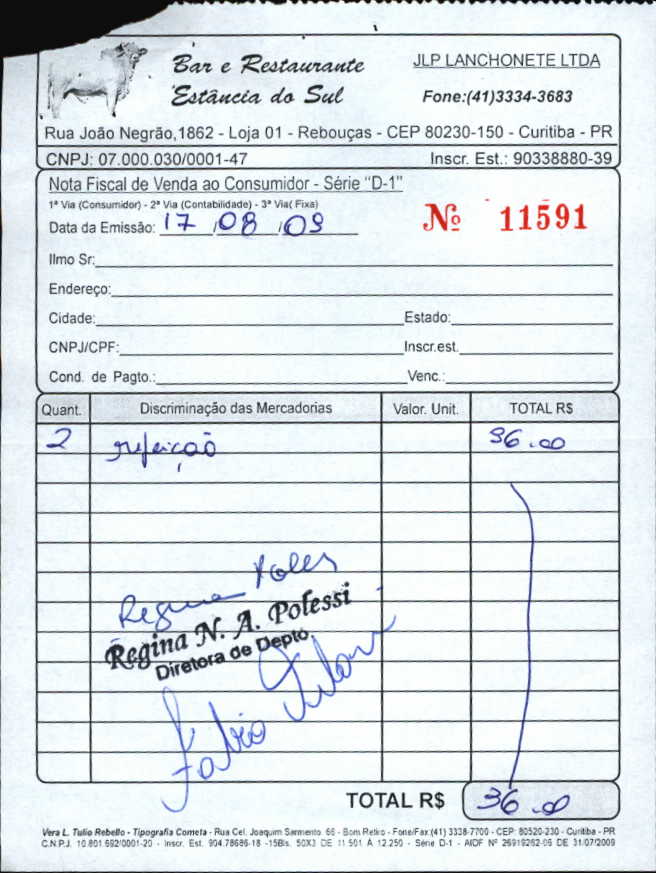 Bar e Restaurante
Estância do Sul
JLP LANCHONETE LTDA
Fone:(41)3334-3683
Rua João Negrão,1862 - Loja 01 - Rebouças - CEP 80230-150 - Curitiba - PR
CNPJ: 07.000.030/0001-47 Inscr. Est.: 90338880-39
Nota Fiscal de Venda ao Consumidor - Série "D-1"
1ª Via (Consumidor) - 2ª Via (Contabilidade) - 3ª Via( Fixa)
Data da Emissão: 17 /08 /09
Nº 11591
Ilmo Sr:
Endereço:
Cidade: Estado:
CNPJ/CPF: Inscr.est.
Cond. de Pagto.: Venc.:
Quant. Discriminação das Mercadorias Valor. Unit. TOTAL R$
2 refeição 36.00
Regina
Regina N. A. Polessi
Diretora de Depto.
Fabio
TOTAL R$ 36.00
Vera L. Tulio Rebello - Tipografia Cometa - Rua Cel. Joaquim Sarmento, 66 - Bom Retiro - Fone/Fax:(41) 3338-7700 - CEP: 80520-230 - Curitiba - PR
C.N.P.J. 10.801.692/0001-20 - Inscr. Est. 904.78686-18 -15Bls. 50X3 DE 11.501 A 12.250 - Série D-1 - AIDF Nº 26919262-06 DE 31/07/2009